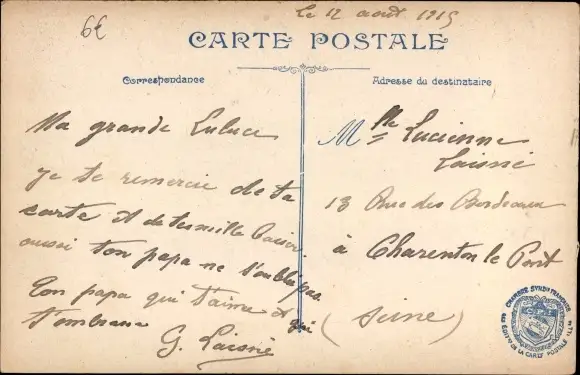 6€
Le 12 août 1915
CARTE POSTALE
Correspondance
Adresse du destinataire
Ma grande Luluce
je te remercie de ta
carte et de tes mille baiser
aussi ton papa ne t'oublie pas
Ton papa qui t'aime et qui
t'embrasse
G. Laisné
Mlle Lucienne
Laisné
13 Rue des Bordeaux
à Charenton le Pont
(Seine)
CHAMBRE SYNDle FRANÇAISE
DE LA CARTE POSTALE